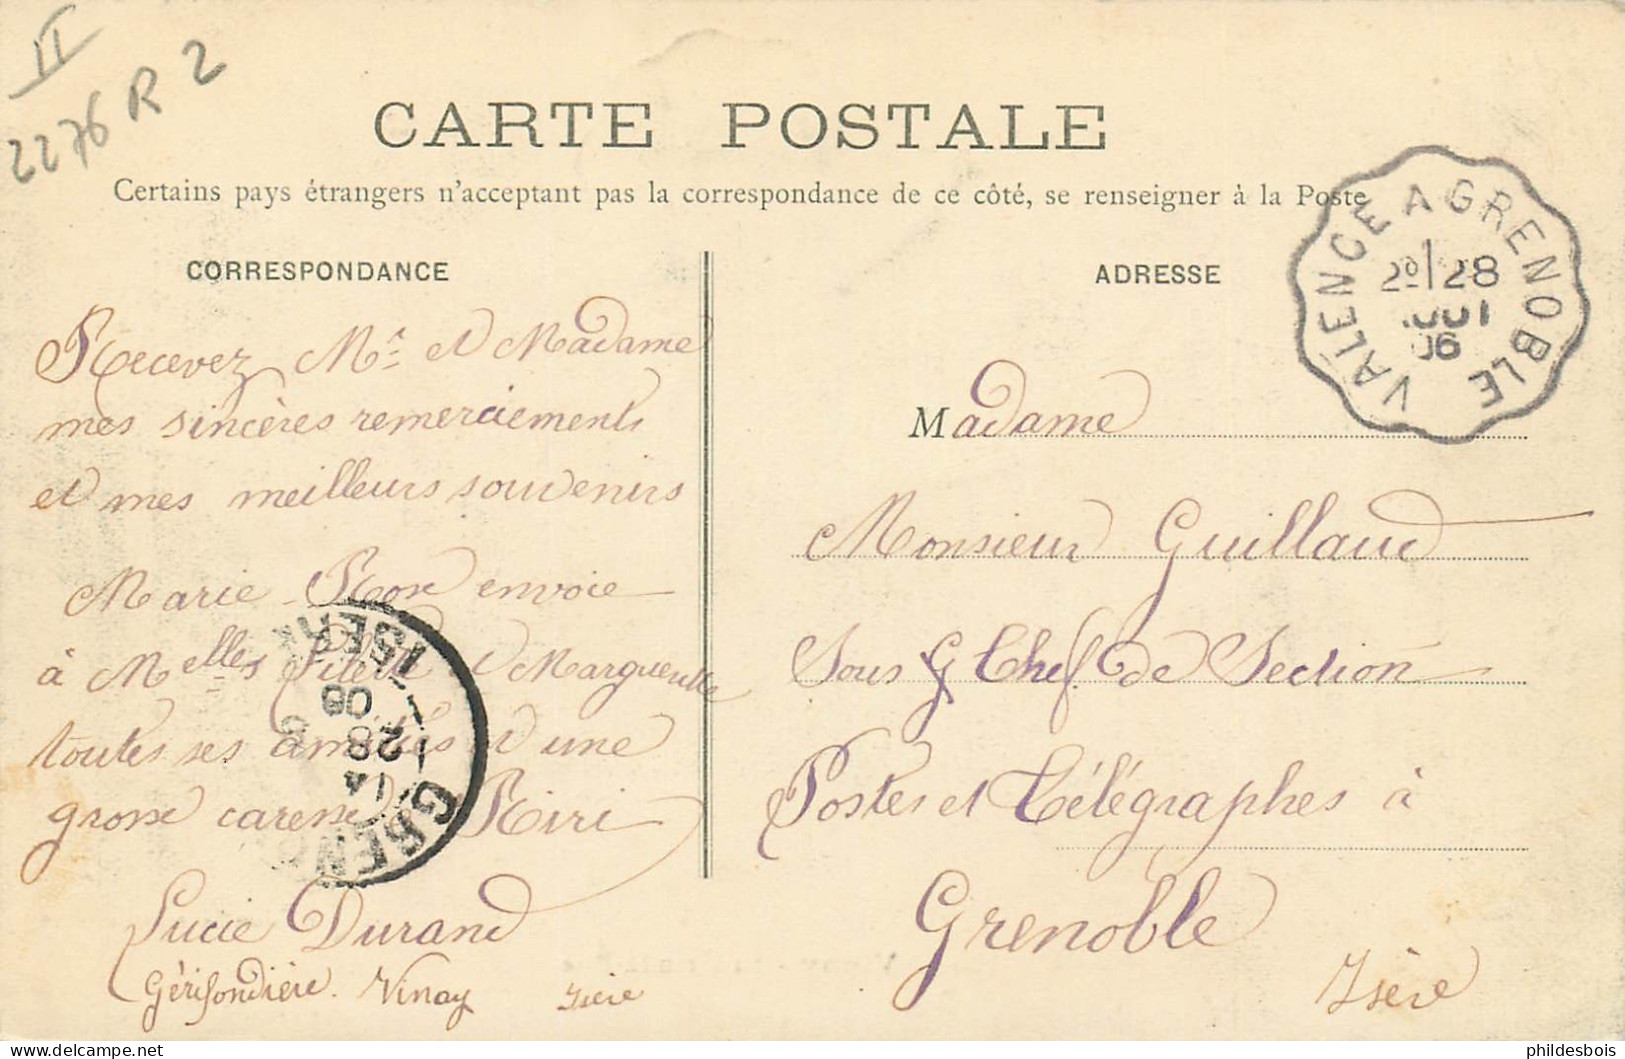 II
2276 R 2
CARTE POSTALE
Certains pays étrangers n'acceptant pas la correspondance de ce côté, se renseigner à la Poste
CORRESPONDANCE
Recevez Mr et Madame
mes sincères remerciements
et mes meilleurs souvenirs
Marie-Rose envoie
à Melles et Marguerite
toutes ses amitiés et une
grosse caresse Riri
Lucie Durand
Vinay Isère
GRENO ISERE
28
06
ADRESSE
Madame
Monsieur Guillaud
Sous Chef de Section
Postes et Télégraphes à
Grenoble
Isère
VALENCE A GRENOBLE
2º/28
AOUT
06
phildesbois